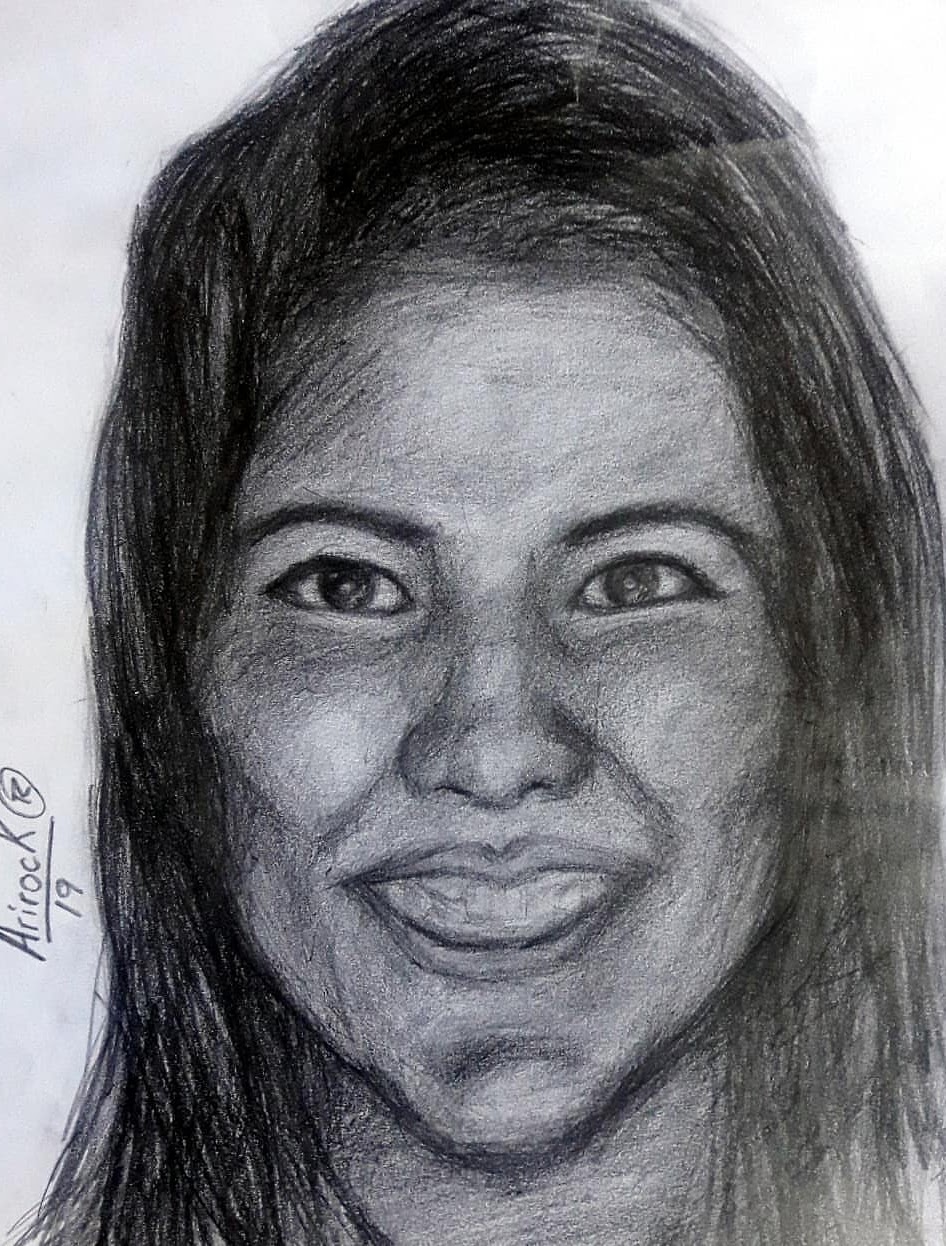 Arirock ®
19